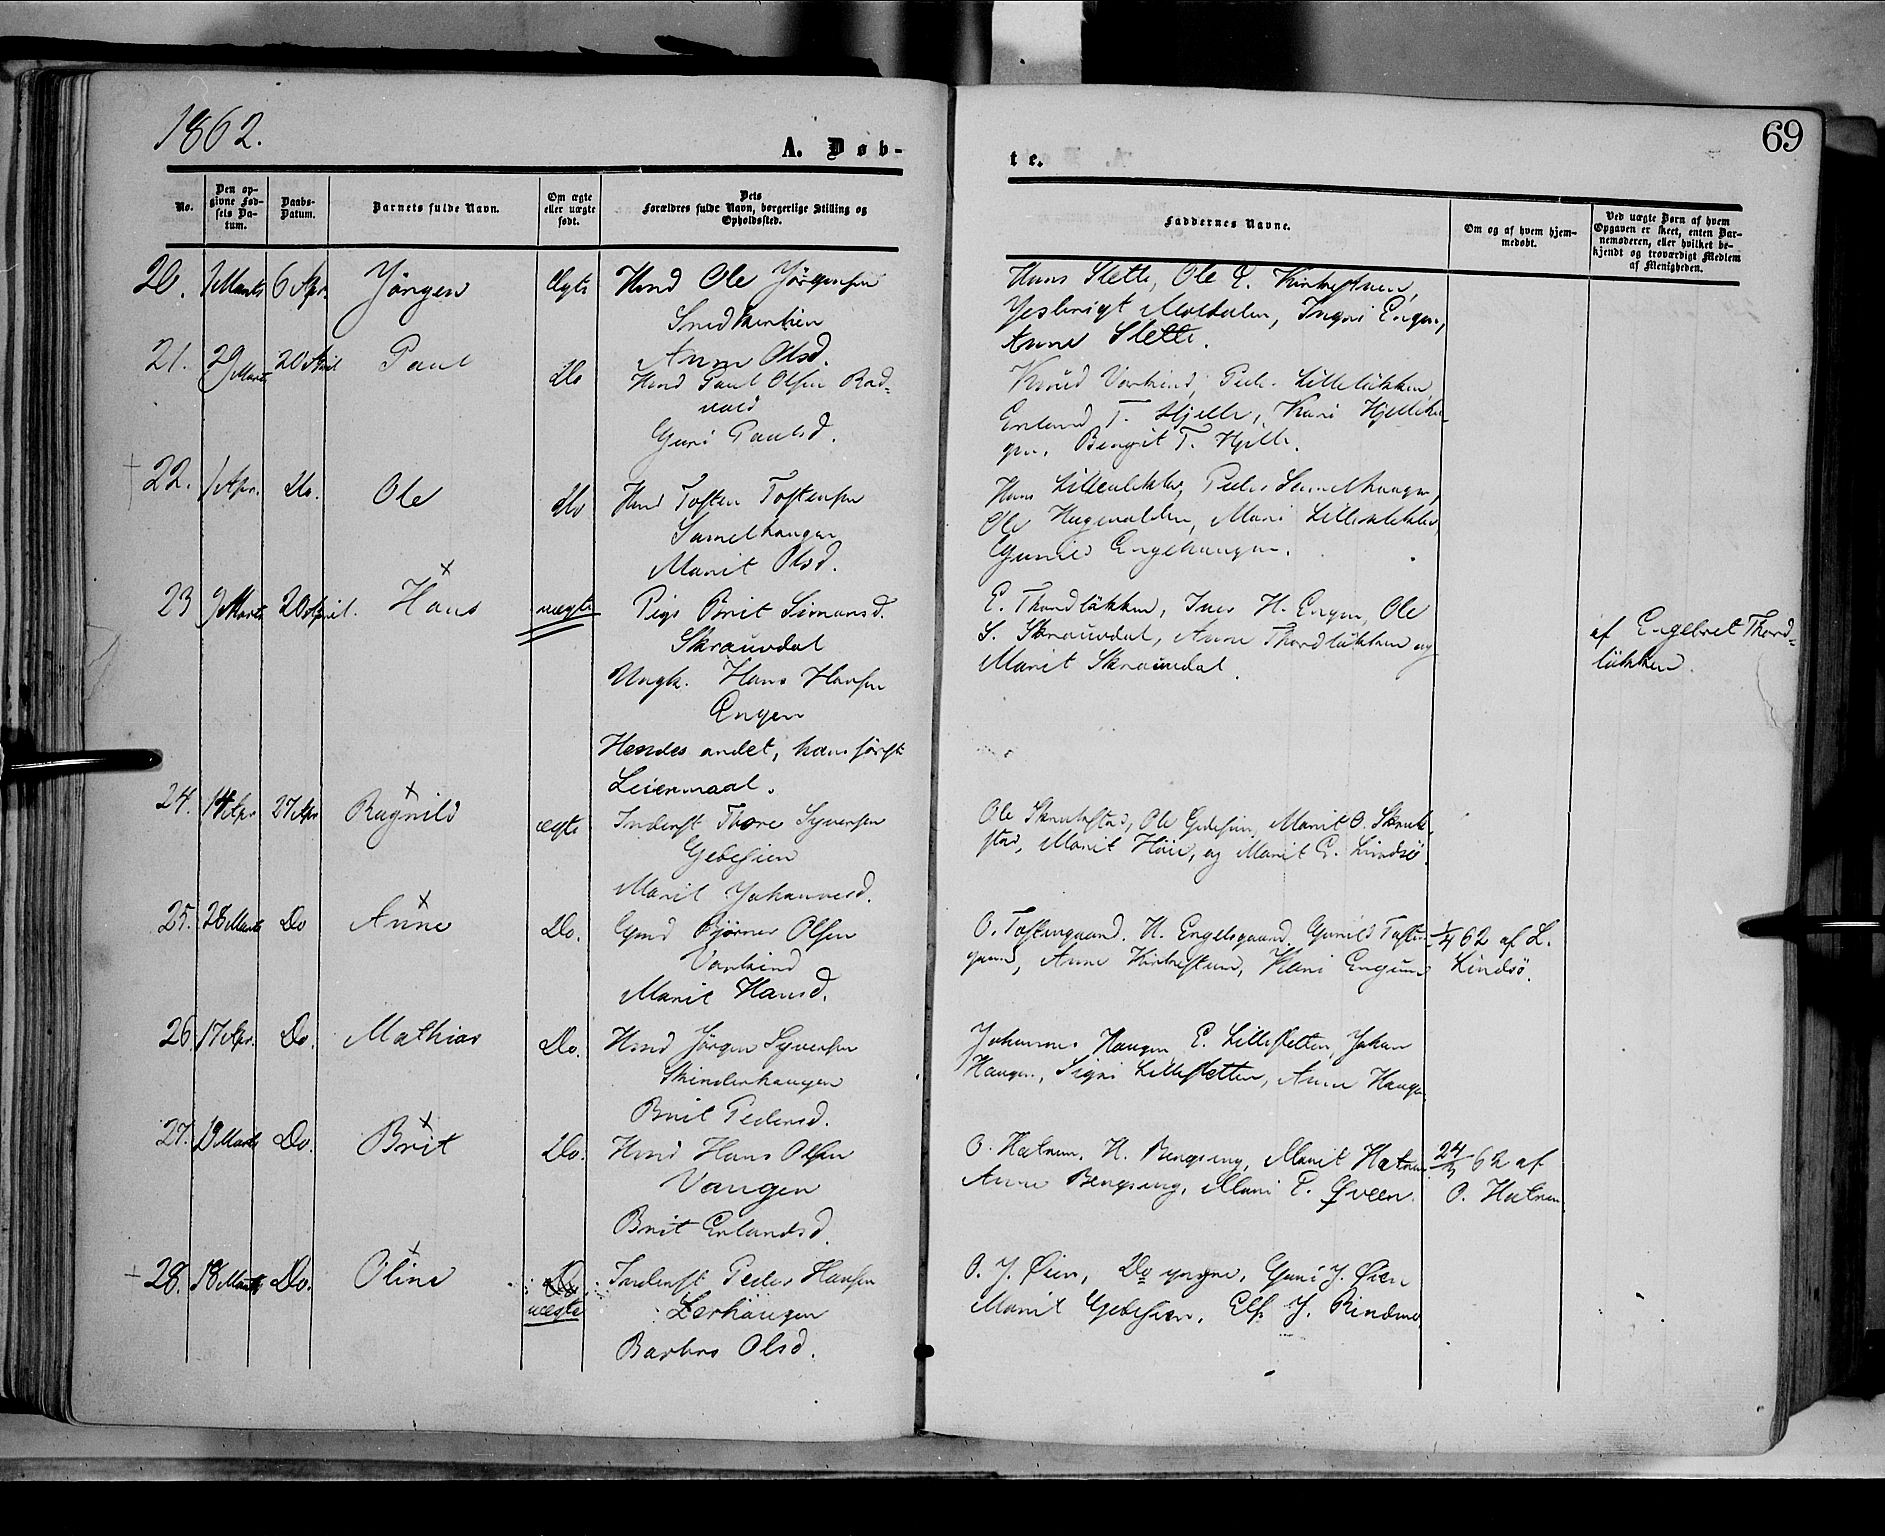 1862.
A. Døb-
te.
69
No.
Den op-
givne Fød-
sels Da-
tum.
Daabs-
Datum.
Barnets fulde Navn.
Om ægte
eller uægte
født.
Dets
Forældres fulde Navn, borgerlige Stilling og
Opholdssted.
Faddernes Navne.
Om og af hvem hjem-
medøbt.
Ved uægte Børn af hvem
Opgaven er skeet, enten Bar-
nemoderen, eller hvilket be-
kjendt og troværdigt Medlem
af Menigheden.
20. Marts 6 Apr. Jörgen Ægte Hmd Ole Jörgensen
Anne Olsd.
Hans Slette, Ole
Ingri Engen,
Anne Slette.
21. 29 Marts 20 April Paul Do Hmd Paul Olsen Rod-
vold
Guri Paulsd.
Knud Varhind, Peder Lilleløkken
Erland T. Hjelle, Kari
gen, Bengit T. Hjelle.
22. 1 Apr. Do. Ole Do Hmd Tosten Tostensen
Marit Olsd.
Hans Peder
Ole Mari
Gunild Engehaugen.
23 9 Marts 20 April. Hans uægte Pige Brit Simensd.
Skrauvdal
Ungk. Hans Hansen
Engen
Hendes andet, hans förste
Leiermaal.
E. Thordlükken, Iver H. Engen, Ole
S. Skrauvdal, Anne Thordlükken og
Marit Skrauvdal.
af Engebret Thord-
lükken.
24. 14 Apr 27 Apr Ragnild ægte Inderst Thore Syversen
Gebesien
Marit Johannesd.
Ole Ole Marit O.
stad, Marit Höie, og Marit E. Lindsö.
25. 28 Marts Do Anne Do. Gmd Björner Olsen
Varhind
Marit Hansd.
O. Tostengaard. H. Engelsgaard, Gunild Tosten
gaard, Anne Kirkestuen, Kari
1/4 62 af L.
Lindsö.
26. 17 Apr. Do. Mathias Do. Hmd Jörgen Syversen
Skinderhaugen
Brit Pedersd.
Johannes Haugen E. Lillesletten, Johan
Haugen, Sigri Lillesletten, Anne Haugen
27. 19 Marts Do. Brit Do. Hmd Hans Olsen
Vangen
Brit Erlandsd.
O. Hatrem, H. Marit Hatrem
Anne Mari E. Øveen.
24/3 62 af
O. Hatrem
28. 18 Marts Do. Oline Do
uægte Inderst Peder Hansen
Lerhaugen
Barbro Olsd.
O. J. Øien, Do yngre, Guri J. Øien
Marit Gebesien, J.